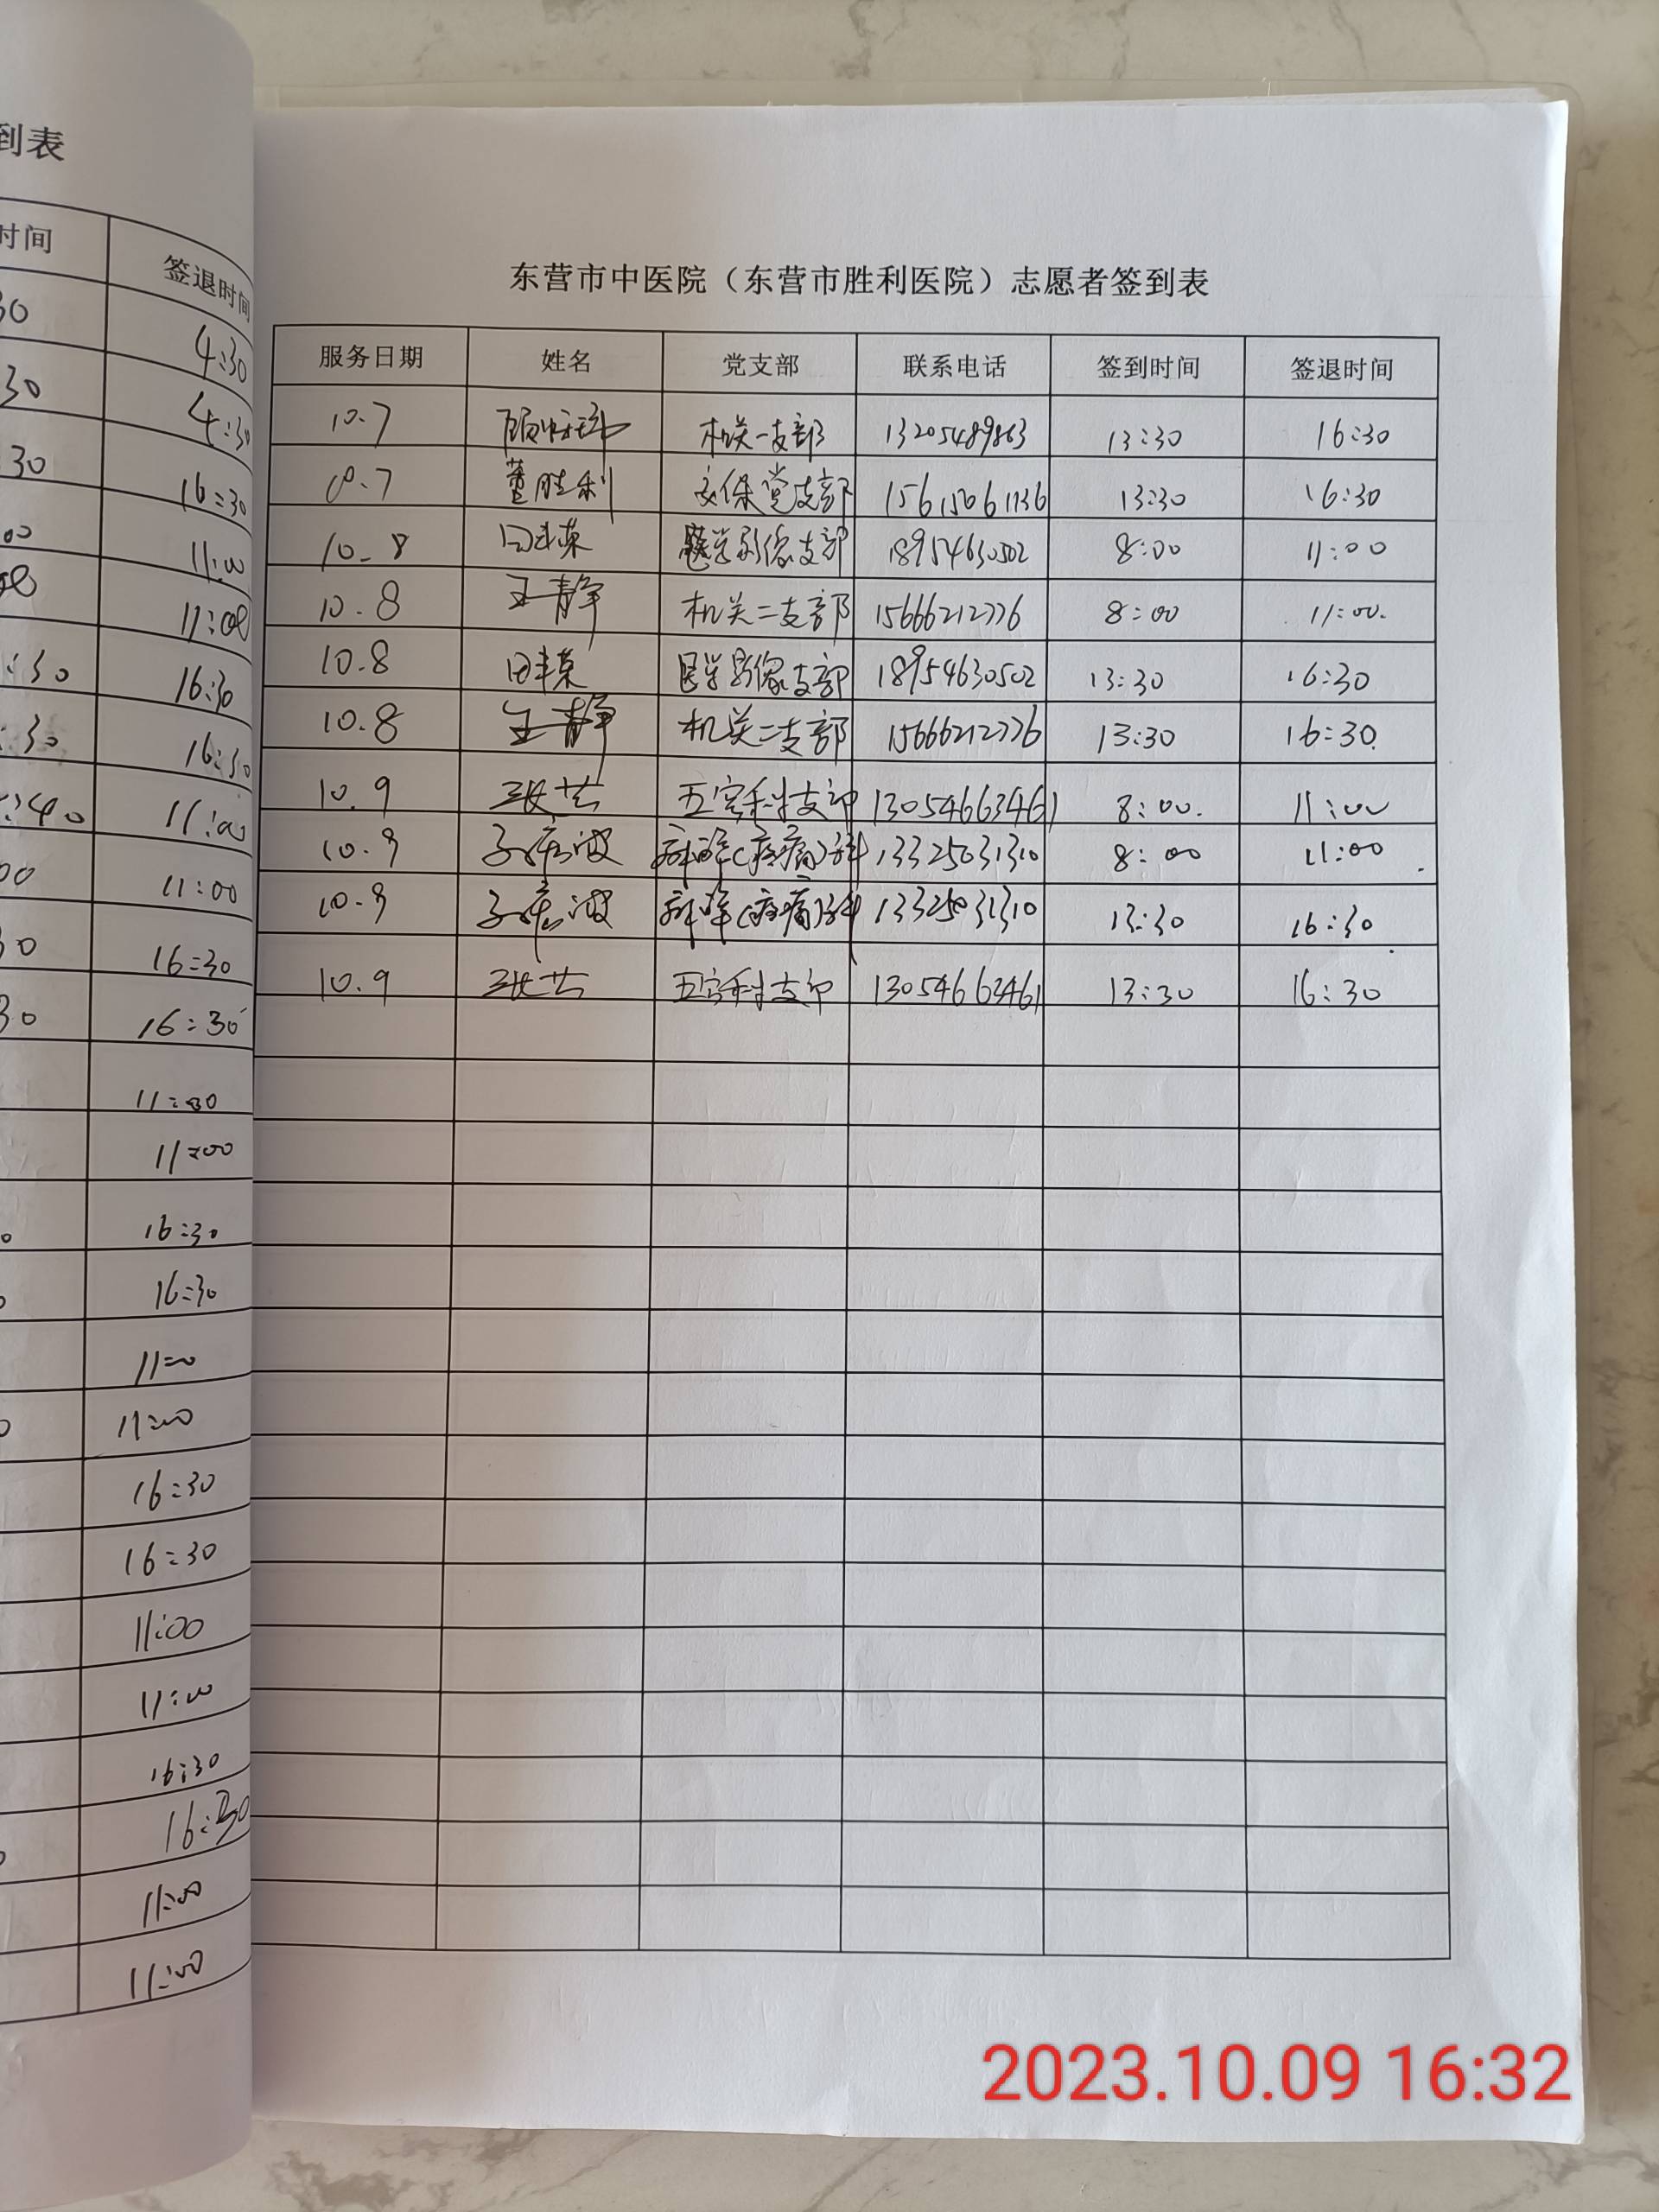 到表
时间 签退时间
30 4:30
30 4:30
:30 16:30
:00 11:00
11:00
:30 16:30
:30 16:30
:40 11:00
00 11:00
30 16:30
30 16:30
11:00
11:00
16:30
16:30
11:00
11:00
16:30
16:30
11:00
11:00
16:30
16:30
11:00
11:00
东营市中医院（东营市胜利医院）志愿者签到表
服务日期 姓名 党支部 联系电话 签到时间 签退时间
10.7 机关一支部 13205489863 13:30 16:30
10.7 董胜利 安保党支部 15615061136 13:30 16:30
10.8 田丰荣 医学影像支部 18954630502 8:00 11:00
10.8 王静 机关二支部 15666212776 8:00 11:00.
10.8 田丰荣 医学影像支部 18954630502 13:30 16:30
10.8 王静 机关二支部 15666212776 13:30 16:30.
10.9 张芸 五官科支部 13054663461 8:00. 11:00
10.9 (疼痛)科 13325031310 8:00 11:00
10.9 (疼痛)科 13325031310 13:30 16:30
10.9 张芸 五官科支部 13054663461 13:30 16:30
2023.10.09 16:32